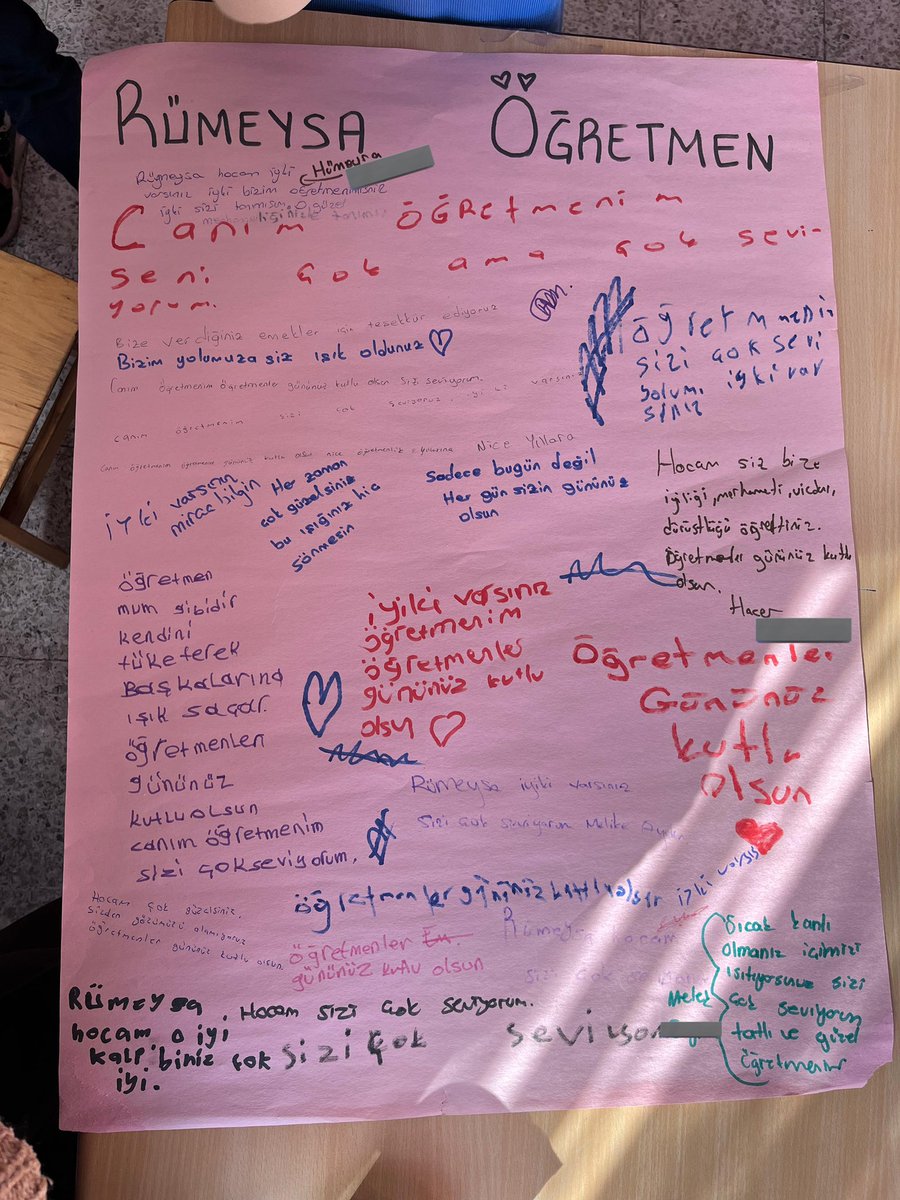 RÜMEYSA ÖĞRETMEN
Rümeysa hocam iyki
Hümeyra
varsınız iyki bizim öğretmenimisniz
iyki sizi tanımışım O güzel
Canım ÖĞRETmenim
seni çok ama çok sevi-
yorum.
Bize verdiğiniz emekler için teşekkür ediyoruz
Bizim yolumuza siz ışık oldunuz
Canım Öğretmenim Öğretmenler gününüz kutlu olsun sizi seviyorum.
canım öğretmenim sizi çok seviyoruz, iyi ki varsınız
Canım öğretmenim öğretmenler gününüz kutlu olsun nice öğretmenlik
Nice Yıllara
Öğretmenin
sizi çok sevi
iyki var
sınız
iyki varsın
miraç bilgin
Her zaman
çok güzelsiniz
bu ışığınız hiç
sönmesin
Sadece bugün değil
Her gün sizin gününüz
olsun
Hocam siz bize
iyiliği, merhameti, vicdanı,
dürüstlüğü öğrettiniz.
Öğretmenler gününüz kutlu
olsun.
Hacer
öğretmen
mum gibidir
kendini
tüketerek
Başkalarına
ışık saçar.
öğretmenler
gününüz
kutlu olsun
canım öğretmenim
sizi çokseviyorum.
iyiki varsınız
öğretmenim
öğretmenler
gününüz kutlu
olsun
Öğretmenler
Gününüz
kutlu
olsun
Rümeysa iyiki varsınız
Sizi çok seviyorum Melike
öğretmenler gününüz kutlu olsun iyki varsis
Hocam çok güzelsiniz.
Sizden gözümüzü alamıyoruz
öğretmenler gününüz kutlu olsun
öğretmenler
gününüz kutlu olsun
Rümeysa hocam
sizi çok seviyorum
Rümeysa
hocam o iyi
kalp biniz çok
iyi.
Hocam sizi çok seviyorum.
Sizi çok seviyor
Melek
Sıcak kanlı
olmanız içimizi
ısıtıyosunuz sizi
çok seviyorum
tatlı ve güzel
öğretmenim